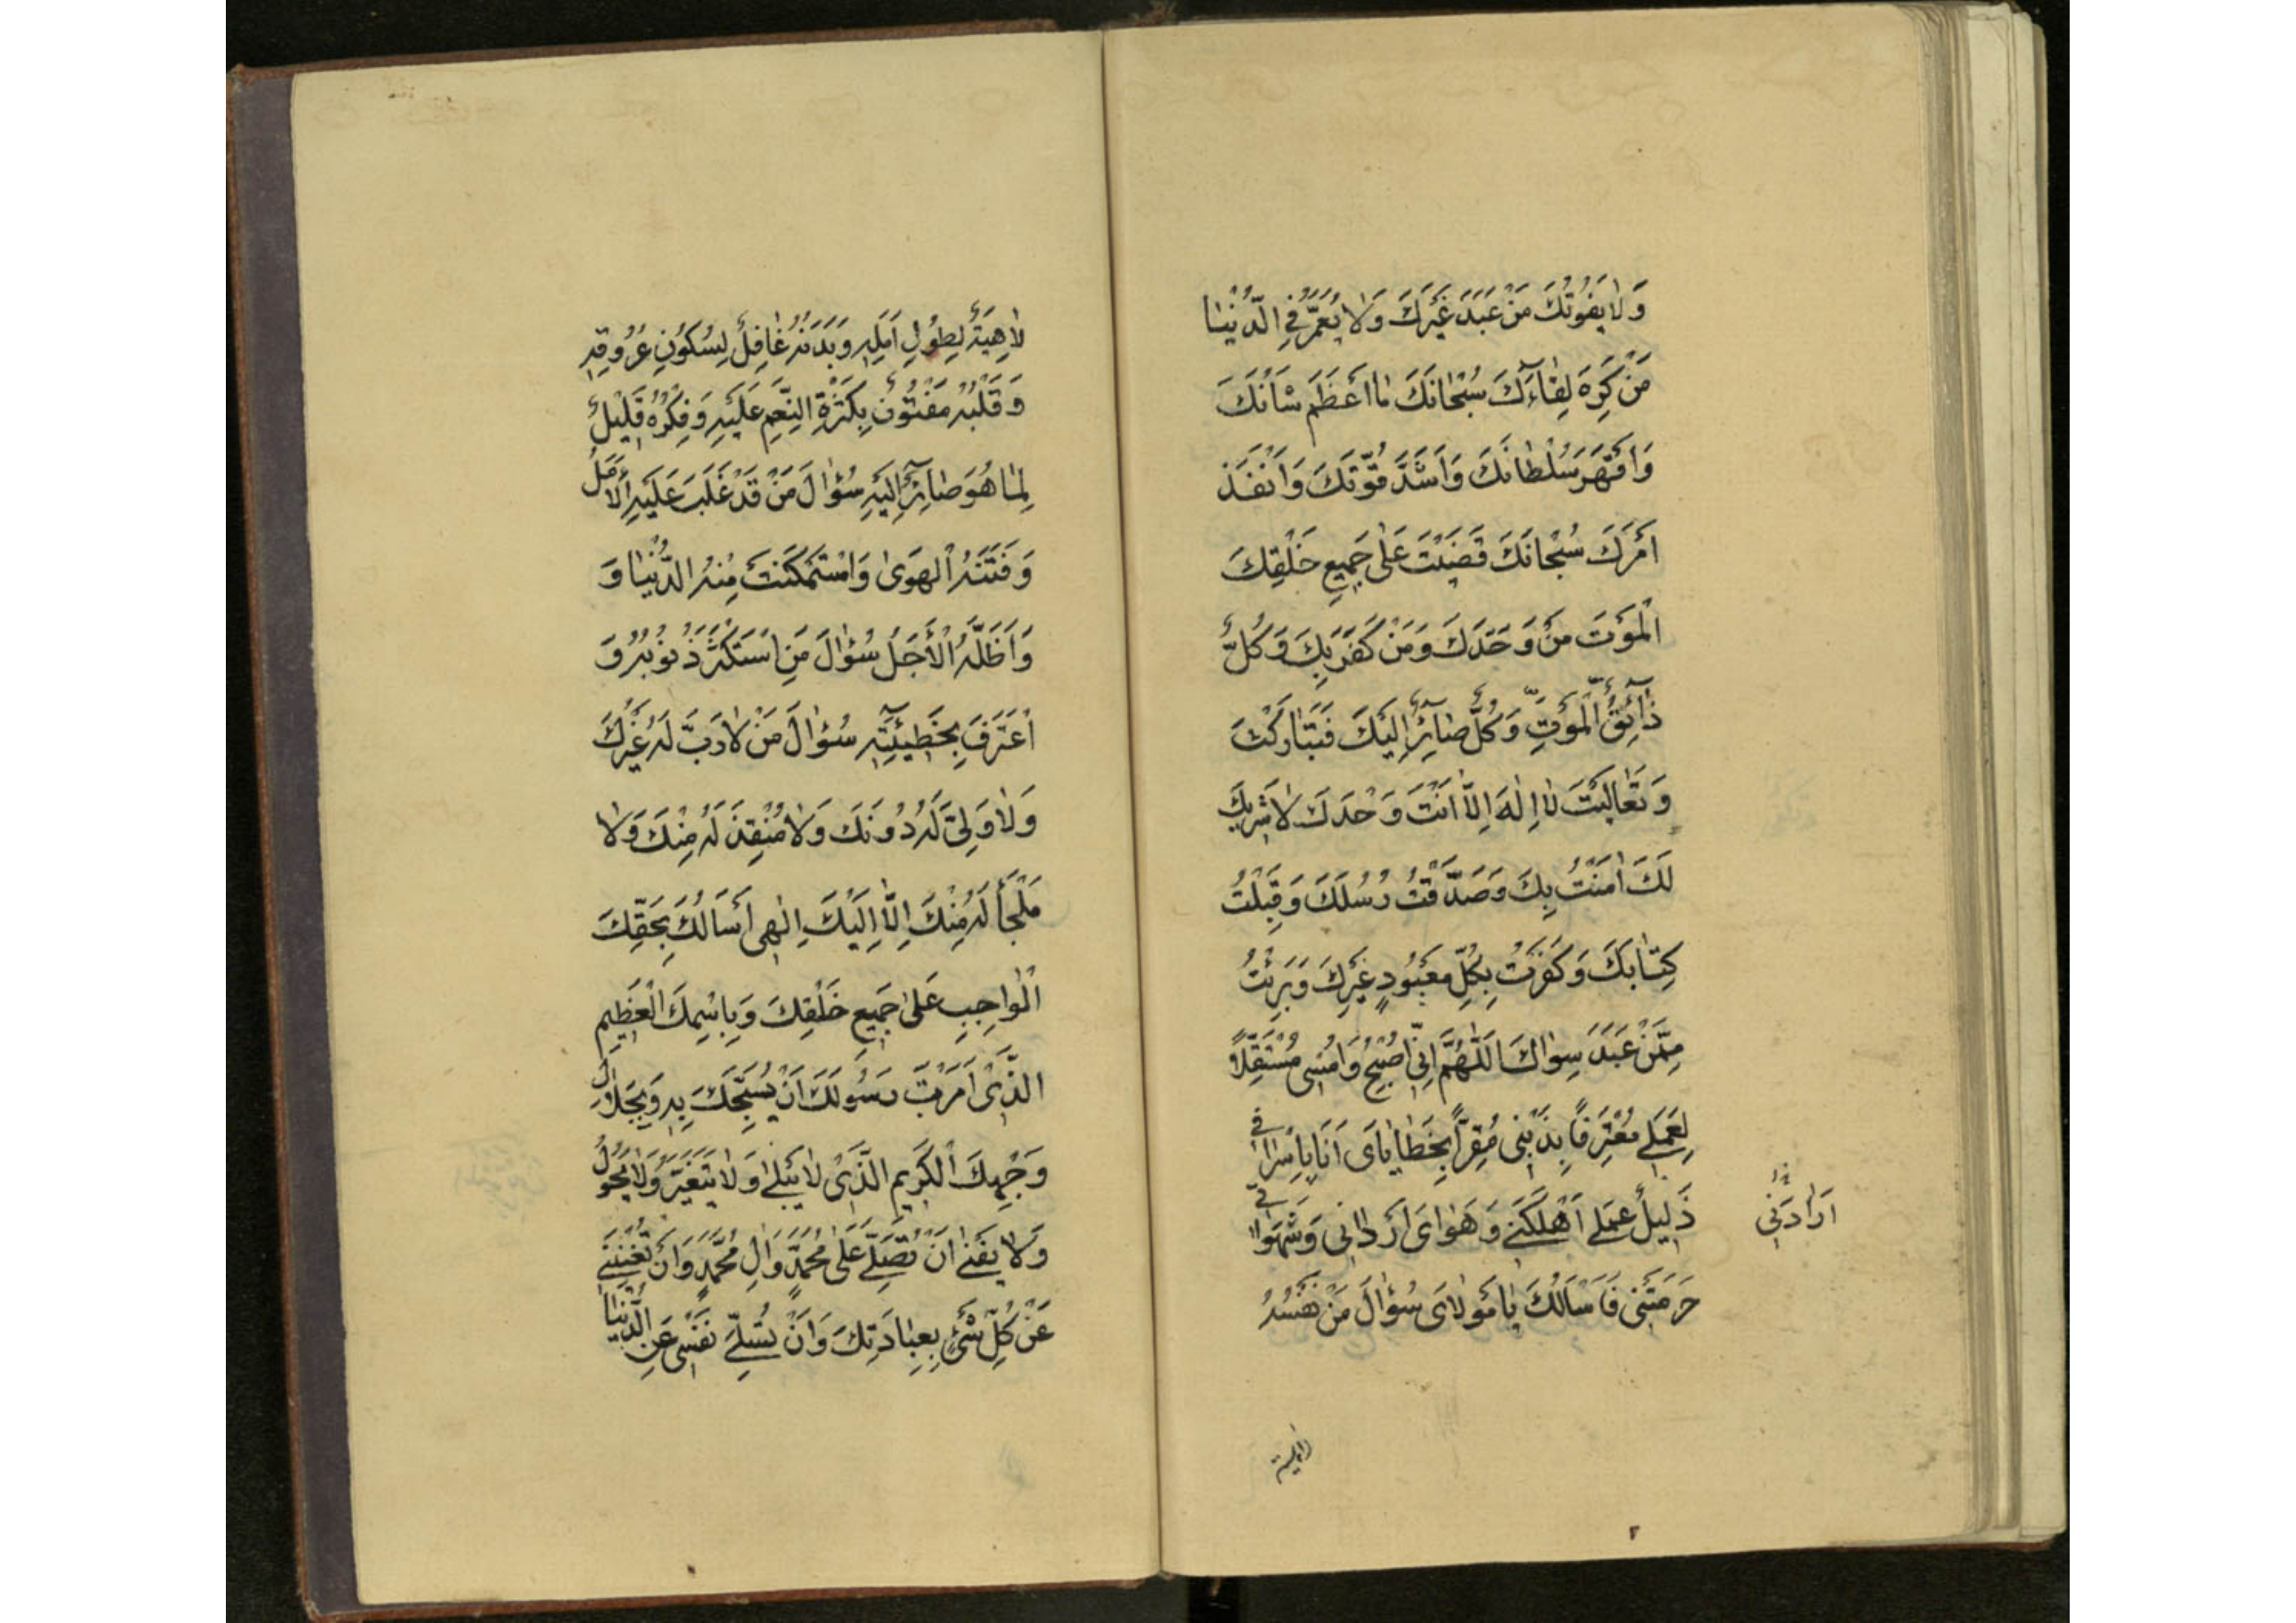 وَلاٰ يَفُوتُكَ مَنْ عَبَدَ غَيْرَكَ وَلاٰ يُعَمَّرُ فِي الدُّنْيٰا
مَنْ كَرِهَ لِقٰاۤءَكَ سُبْحٰانَكَ مٰا اَعْظَمَ شَأْنَكَ
وَاَقْهَرَ سُلْطٰانَكَ وَاَشَدَّ قُوَّتَكَ وَاَنْفَذَ
اَمْرَكَ سُبْحٰانَكَ قَضَيْتَ عَلٰى جَمِيعِ خَلْقِكَ
الْمَوْتَ مَنْ وَحَّدَكَ وَمَنْ كَفَرَ بِكَ وَكُلٌّ
ذٰاۤئِقُ الْمَوْتِ وَكُلٌّ صٰاۤئِرٌ اِلَيْكَ فَتَبٰارَكْتَ
وَتَعٰالَيْتَ لاٰ اِلٰهَ اِلاّٰ اَنْتَ وَحْدَكَ لاٰ شَرِيكَ
لَكَ اٰمَنْتُ بِكَ وَصَدَّقْتُ رُسُلَكَ وَقَبِلْتُ
كِتٰابَكَ وَكَفَرْتُ بِكُلِّ مَعْبُودٍ غَيْرِكَ وَبَرِئْتُ
مِمَّنْ عَبَدَ سِوٰاكَ اَللّٰهُمَّ اِنِّي اُصْبِحُ وَاُمْسِى مُسْتَقِلاًّ
لِعَمَلِي مُعْتَرِفًا بِذَنْبِى مُقِرًّا بِخَطٰايٰاىَ اَنَا بِاِسْرٰافِي
ذَلِيلٌ عَمَلِي اَهْلَكَنِي وَهَوٰاىَ اَرْدٰانِى وَشَهَوٰاتِي
اَرٰادَتْنِي
حَرَمَتْنِى فَاَسْأَلُكَ يٰا مَوْلاٰىَ سُؤٰالَ مَنْ نَفْسُهُ
لاٰهِيَةٌ
٢
لاٰهِيَةٌ لِطُولِ اَمَلِهِ وَبَدَنُهُ غٰافِلٌ لِسُكُونِ عُرُوقِهِ
وَقَلْبُهُ مَفْتُونٌ بِكَثْرَةِ النِّعَمِ عَلَيْهِ وَفِكْرُهُ قَلِيلٌ
لِمٰا هُوَ صٰاۤئِرٌ اِلَيْهِ سُؤٰالَ مَنْ قَدْ غَلَبَ عَلَيْهِ الْاَمَلُ
وَفَتَنَهُ الْهَوىٰ وَاسْتَمْكَنَتْ مِنْهُ الدُّنْيٰا وَ
وَاَظَلَّهُ الْأَجَلُ سُؤٰالَ مَنِ اسْتَكْثَرَ ذُنُوبَهُ وَ
اعْتَرَفَ بِخَطِيۤئَتِهِ سُؤٰالَ مَنْ لاٰ رَبَّ لَهُ غَيْرُكَ
وَلاٰ وَلِىَّ لَهُ دُونَكَ وَلاٰ مُنْقِذَ لَهُ مِنْكَ وَلاٰ
مَلْجَأَ لَهُ مِنْكَ اِلاّٰ اِلَيْكَ اِلٰهِى اَسْأَلُكَ بِحَقِّكَ
الْوٰاجِبِ عَلىٰ جَمِيعِ خَلْقِكَ وَبِاسْمِكَ الْعَظِيمِ
الَّذِى اَمَرْتَ رَسُولَكَ اَنْ يُسَبِّحَكَ بِهِ وَبِجَلاٰلِ
وَجْهِكَ الْكَرِيمِ الَّذِى لاٰ يَبْلىٰ وَلاٰ يَتَغَيَّرُ وَلاٰ يَحُولُ
وَلاٰ يَفْنىٰ اَنْ تُصَلِّيَ عَلىٰ مُحَمَّدٍ وَاٰلِ مُحَمَّدٍ وَاَنْ تُغْنِيَنِي
عَنْ كُلِّ شَىْءٍ بِعِبٰادَتِكَ وَاَنْ تُسَلِّيَ نَفْسِى عَنِ الدُّنْيٰا